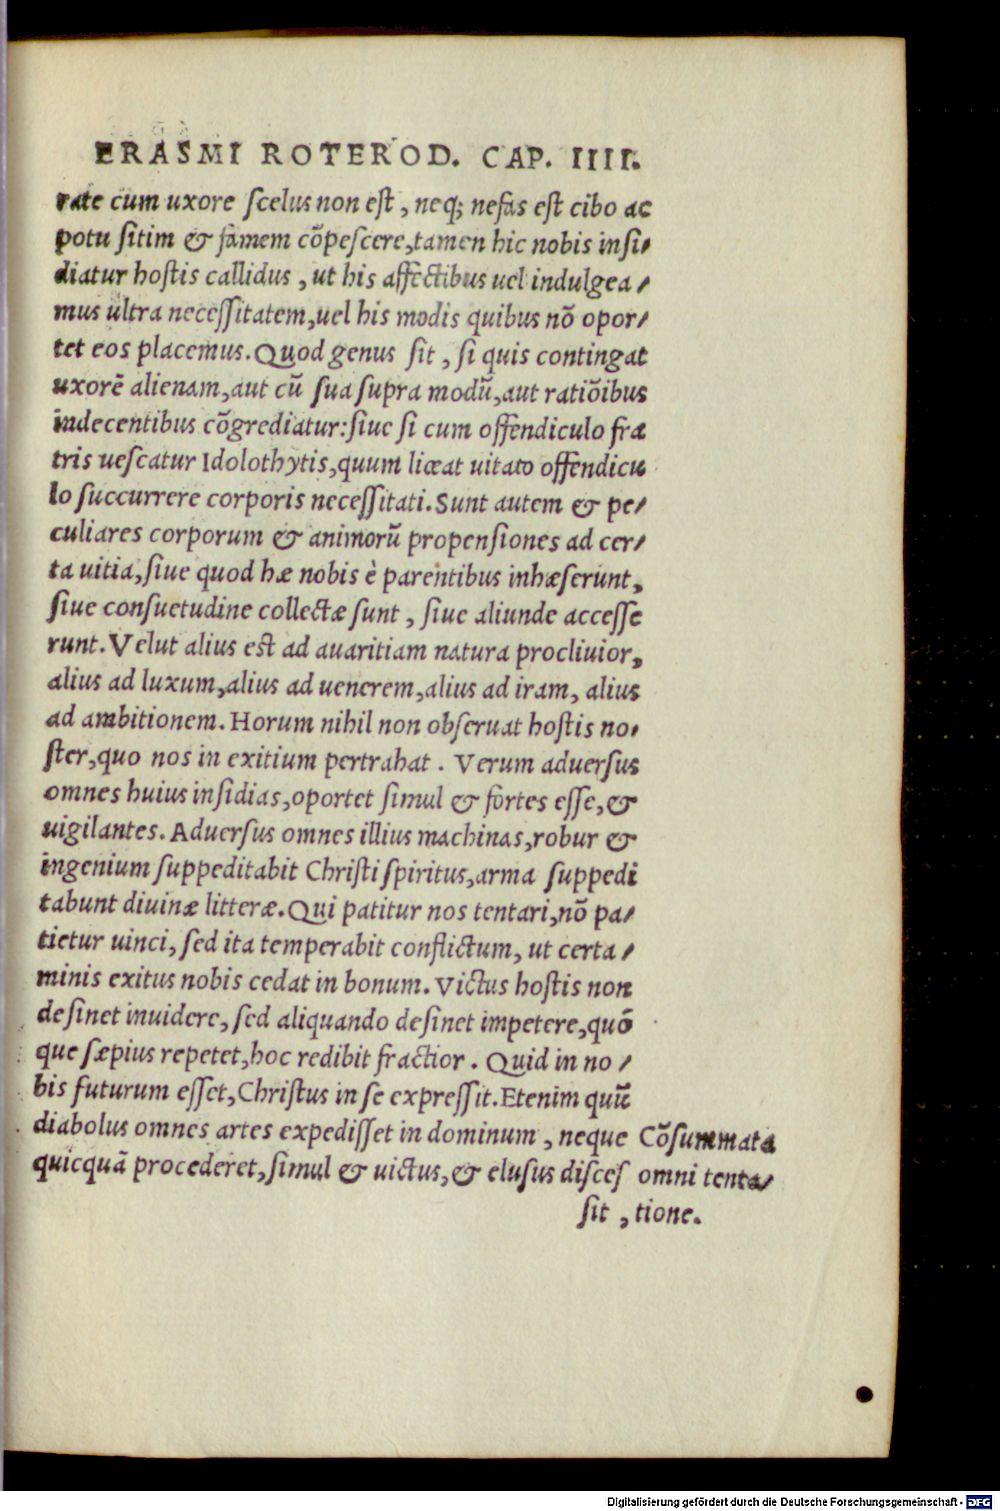 ERASMI ROTEROD. CAP. IIII.
rate cum uxore scelus non est, neq; nefas est cibo ac
potu sitim & famem cõpescere, tamen hic nobis insi-
diatur hostis callidus, ut his affectibus uel indulgea-
mus ultra necessitatem, uel his modis quibus nõ opor-
tet eos placemus. Quod genus sit, si quis contingat
uxorẽ alienam, aut cũ sua supra modũ, aut ratiõibus
indecentibus cõgrediatur: siue si cum offendiculo fra
tris uescatur Idolothytis, quum liceat uitato offendicu
lo succurrere corporis necessitati. Sunt autem & pe-
culiares corporum & animorũ propensiones ad cer-
ta uitia, siue quod hæ nobis è parentibus inhæserunt,
siue consuetudine collectæ sunt, siue aliunde accesse
runt. Velut alius est ad auaritiam natura procliuior,
alius ad luxum, alius ad uenerem, alius ad iram, alius
ad ambitionem. Horum nihil non obseruat hostis no-
ster, quo nos in exitium pertrahat. Verum aduersus
omnes huius insidias, oportet simul & fortes esse, &
uigilantes. Aduersus omnes illius machinas, robur &
ingenium suppeditabit Christi spiritus, arma suppedi
tabunt diuinæ litteræ. Qui patitur nos tentari, nõ pa-
tietur uinci, sed ita temperabit conflictum, ut certa-
minis exitus nobis cedat in bonum. Victus hostis non
desinet inuidere, sed aliquando desinet impetere, quõ
que sæpius repetet, hoc redibit fractior. Quid in no-
bis futurum esset, Christus in se expressit. Etenim quũ
diabolus omnes artes expedisset in dominum, neque
quicquã procederet, simul & uictus, & elusus disces
sit,
Cõsummata
omni tenta-
tione.
Digitalisierung gefördert durch die Deutsche Forschungsgemeinschaft - DFG